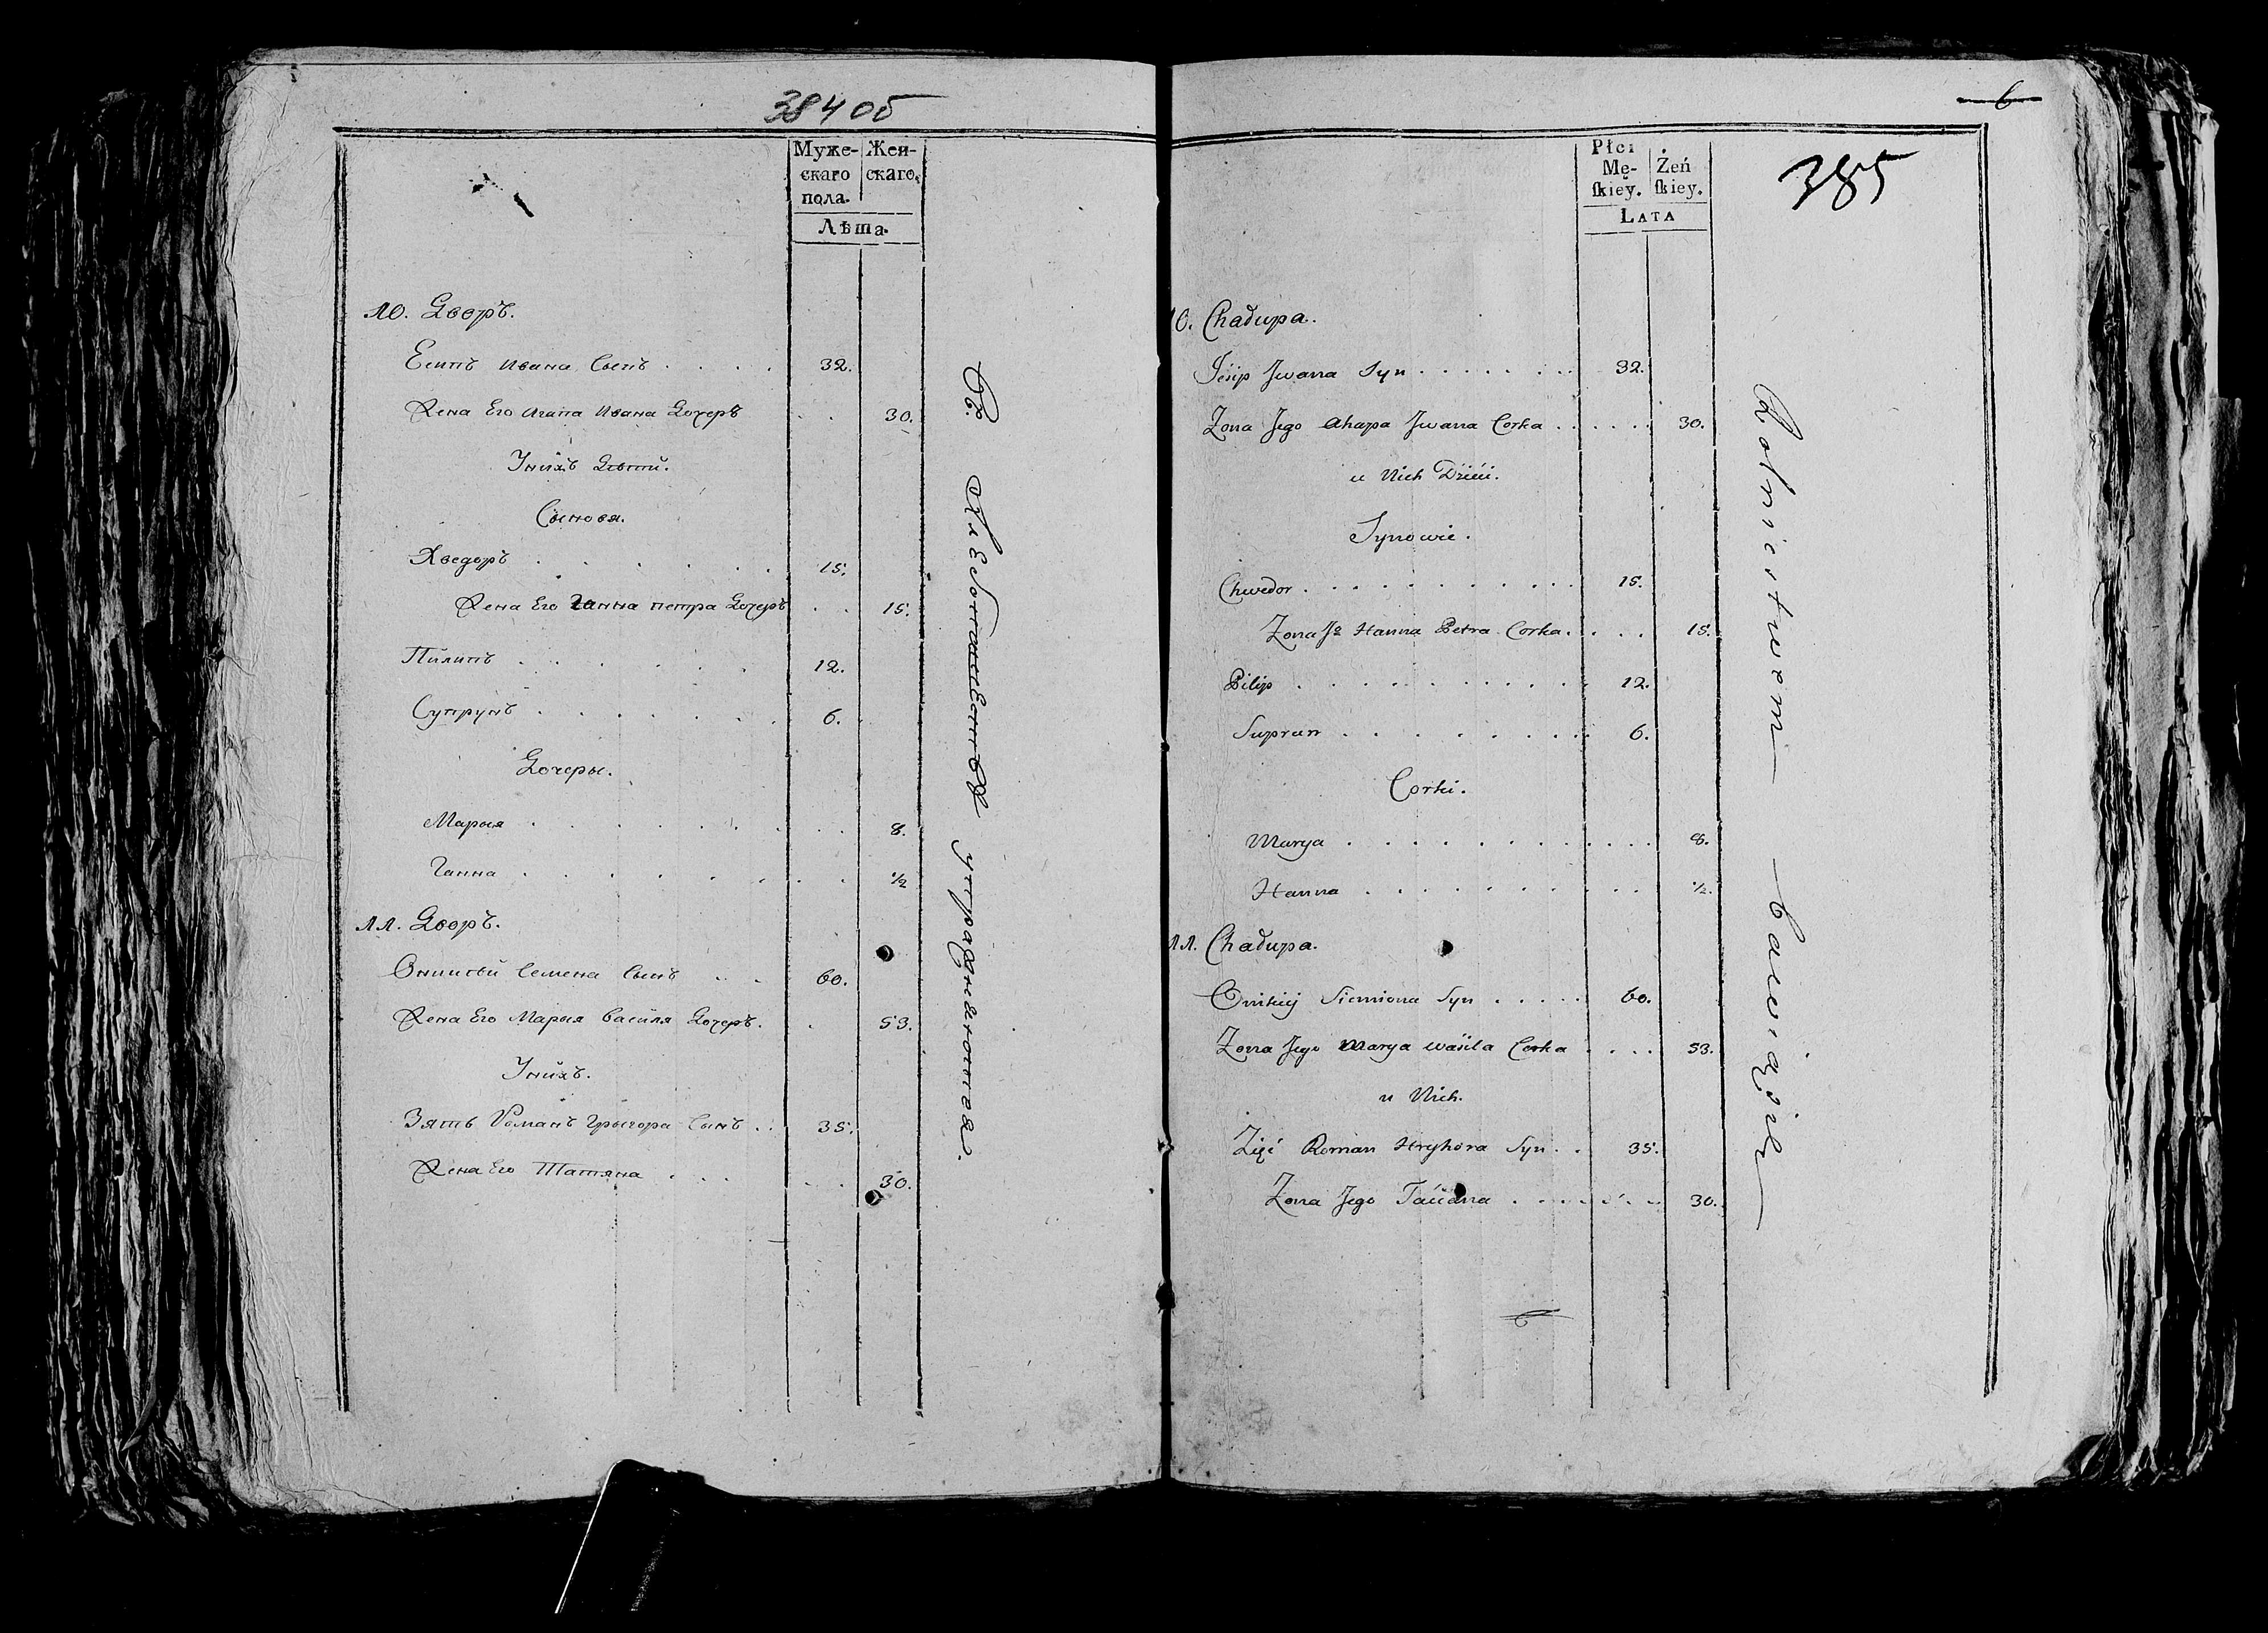 384 об
Муже-
скаго
пола.
Жен-
скаго.
Лѣта.
10. Дворъ.
Есипъ Ивана Сынъ . . . . 32.
Жена Его Агапа Ивана Дочеръ . . 30.
У нихъ Дѣти.
Сыновя.
Хведоръ . . . . . . 15.
Жена Его Ганна петра Дочеръ . . 15.
Пилипъ . . . . . . 12.
Супрунъ . . . . . . . 6.
Дочеры.
Марыя . . . . . . . . . 8.
Ганна . . . . . . . . . 1/2
11. Дворъ.
Онисъй Семена Сынъ . . . 60.
Жена Его Марыя Василя Дочеръ. . 53.
У нихъ.
Зять Романъ Грыгора Сынъ . . 35.
Жена Его Татяна . . . . . . 30.
Въ хлебопашестве упражняются.
6
385
Płci
Mę-
skiey.
Żeń
skiey.
LATA
10. Chałupa.
Jesip Jwana Syn . . . . . . . 32.
Zona Jego Ahapa Jwana Corka . . . . . . 30.
u Nich Dzieci.
Synowie.
Chwedor . . . . . . . . . . . 15.
Zona Jo Hanna Petra Corka . . . . 15.
Pilip . . . . . . . . . . 12.
Suprun . . . . . . . . . 6.
Corki.
Marya . . . . . . . . . . . . 8.
Hanna . . . . . . . . . . . 1/2.
11. Chałupa.
Siemiona Syn . . . . . 60.
Zona Jego Marya Wasila Corka . . . . 53.
u Nich.
Zięć Roman Hryhora Syn . . 35.
Zona Jego Taciana . . . . . . . . 30.
Rolnictwem bawią się